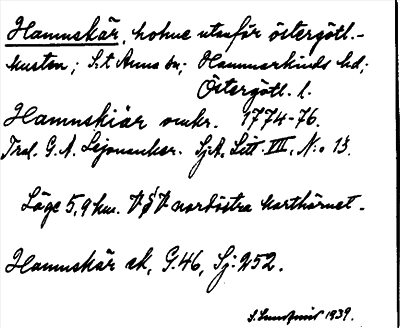 Hamnskär, holme utanför östergötl.-
kusten; S:t Anna sn; Hammarkinds hd;
Östergötl. l.
Hamnskiär omkr. 1774-76.
Trol. G. A. Leijonanker. SjK, Litt. VIII, N:o 13.
Läge 5,9 km. V § V nordöstra karthörnet.
Hamnskär ek, G:46, Sj: 252.
S. 1939.